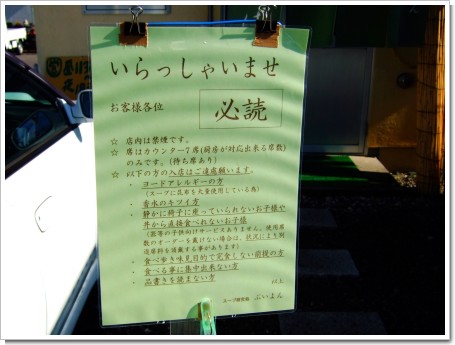 いらっしゃいませ
お客様各位
必読
☆ 店内は禁煙です。
☆ 席はカウンター7席(厨房が対応出来る席数)
のみです。(待ち席あり)
☆ 以下の方の入店はご遠慮願います。
・ ヨードアレルギーの方
(スープに昆布を大量使用している為)
・ 香水のキツイ方
・ 静かに椅子に座っていられないお子様や
丼から直接食べれないお子様
・ 食べ歩き味見目的で完食しない前提の方
・ 食べる事に集中出来ない方
・ 品書きを読まない方
以上